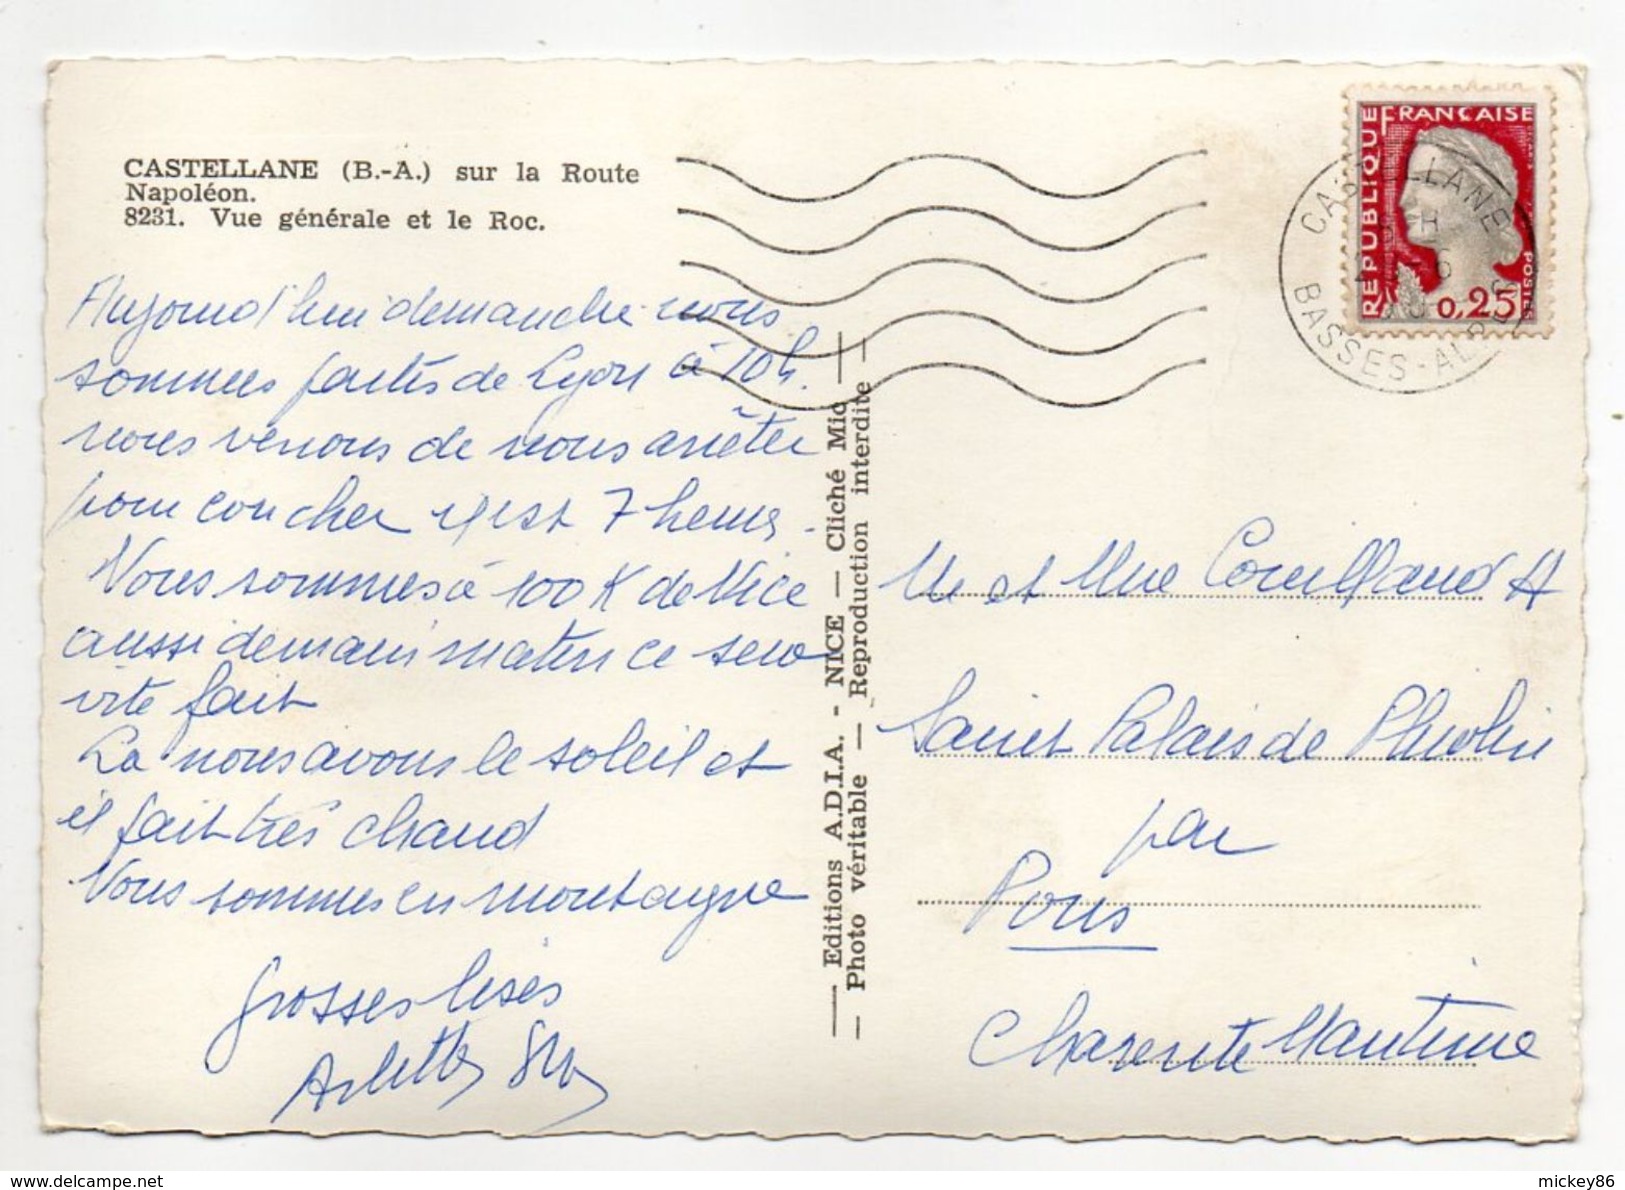 CASTELLANE (B.-A.) sur la Route
Napoléon.
8231. Vue générale et le Roc.
Aujourd'hui demanche nous
sommes partis de Lyon à 10h.
nous venons de nous arrêter
pour coucher il est 7 heures.
Nous sommes à 100 K de Nice
aussi demain matin ce sera
vite fait
La nous avons le soleil et
il fait très chaud
Nous sommes en montagne
Grosses bises
Arlette
— Editions A.D.I.A. - NICE — Cliché Mic —
— Photo véritable — Reproduction interdite —
REPUBLIQUE FRANÇAISE
POSTES
0,25
CASTELLANE
BASSES-ALPES
Mr et Mme Couillaud H
Saint Palais de Phiolin
par
Pons
Charente Maritime
www.delcampe.net
mickey86